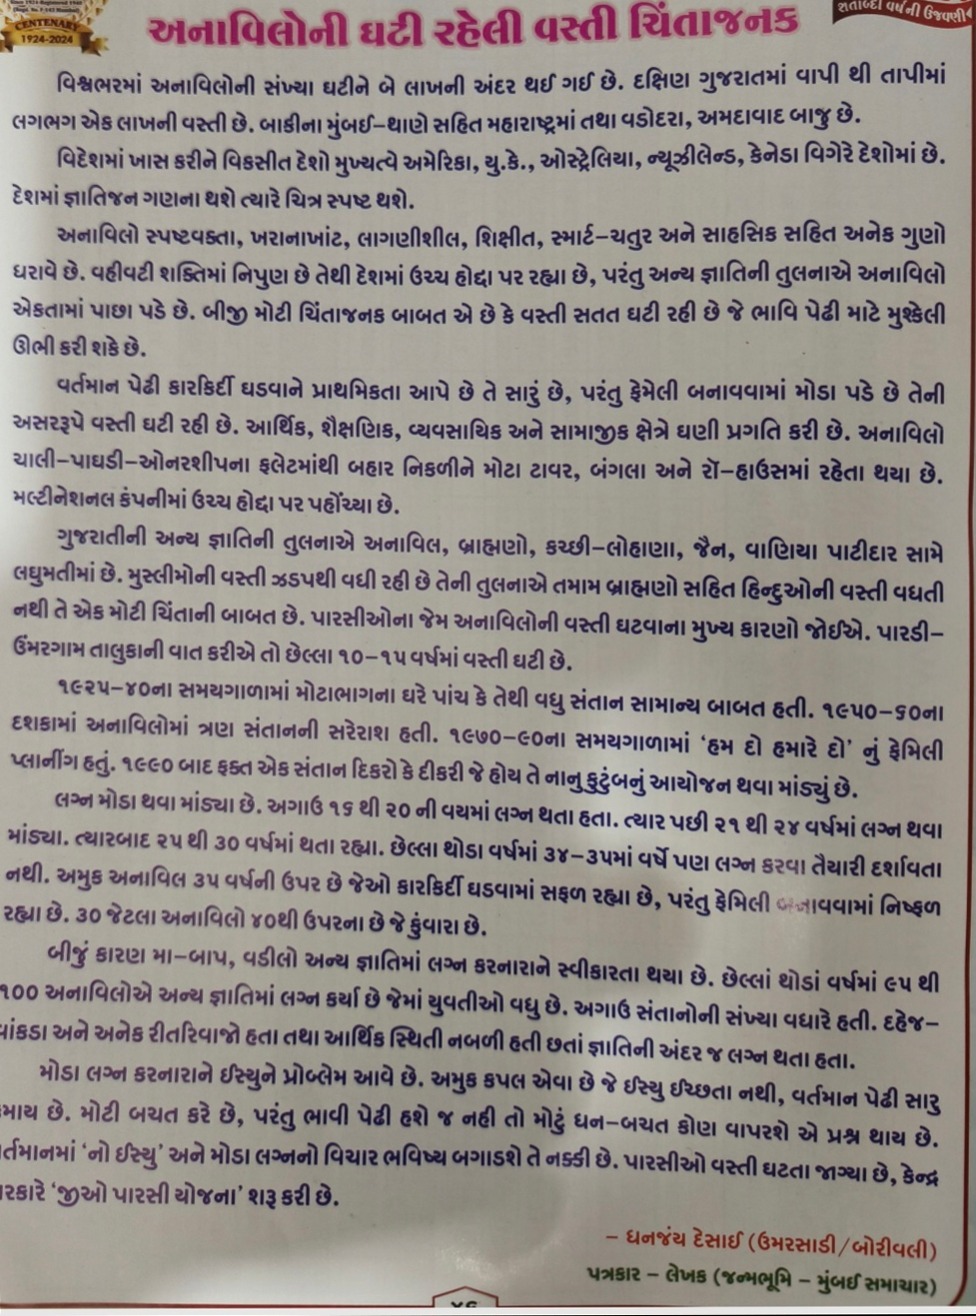 Since 1924 Registered 1940
(Regn. No. F-142 Mumbai)
CENTENARY
1924-2024
શતાબ્દી વર્ષની ઉજવણી
અનાવિલોની ઘટી રહેલી વસ્તી ચિંતાજનક
વિશ્વભરમાં અનાવિલોની સંખ્યા ઘટીને બે લાખની અંદર થઈ ગઈ છે. દક્ષિણ ગુજરાતમાં વાપી થી તાપીમાં
લગભગ એક લાખની વસ્તી છે. બાકીના મુંબઈ-થાણે સહિત મહારાષ્ટ્રમાં તથા વડોદરા, અમદાવાદ બાજુ છે.
વિદેશમાં ખાસ કરીને વિકસીત દેશો મુખ્યત્વે અમેરિકા, યુ.કે., ઓસ્ટ્રેલિયા, ન્યૂઝીલેન્ડ, કેનેડા વિગેરે દેશોમાં છે.
દેશમાં જ્ઞાતિજન ગણના થશે ત્યારે ચિત્ર સ્પષ્ટ થશે.
અનાવિલો સ્પષ્ટવક્તા, ખરાનાખાંટ, લાગણીશીલ, શિક્ષીત, સ્માર્ટ-ચતુર અને સાહસિક સહિત અનેક ગુણો
ધરાવે છે. વહીવટી શક્તિમાં નિપુણ છે તેથી દેશમાં ઉચ્ચ હોદ્દા પર રહ્યા છે, પરંતુ અન્ય જ્ઞાતિની તુલનાએ અનાવિલો
એકતામાં પાછા પડે છે. બીજી મોટી ચિંતાજનક બાબત એ છે કે વસ્તી સતત ઘટી રહી છે જે ભાવિ પેઢી માટે મુશ્કેલી
ઊભી કરી શકે છે.
વર્તમાન પેઢી કારકિર્દી ઘડવાને પ્રાથમિકતા આપે છે તે સારું છે, પરંતુ ફેમેલી બનાવવામાં મોડા પડે છે તેની
અસરરૂપે વસ્તી ઘટી રહી છે. આર્થિક, શૈક્ષણિક, વ્યવસાયિક અને સામાજીક ક્ષેત્રે ઘણી પ્રગતિ કરી છે. અનાવિલો
ચાલી-પાઘડી-ઓનરશીપના ફ્લેટમાંથી બહાર નિકળીને મોટા ટાવર, બંગલા અને રૉ-હાઉસમાં રહેતા થયા છે.
મલ્ટીનેશનલ કંપનીમાં ઉચ્ચ હોદ્દા પર પહોંચ્યા છે.
ગુજરાતીની અન્ય જ્ઞાતિની તુલનાએ અનાવિલ, બ્રાહ્મણો, કચ્છી-લોહાણા, જૈન, વાણિયા પાટીદાર સામે
લઘુમતીમાં છે. મુસ્લીમોની વસ્તી ઝડપથી વધી રહી છે તેની તુલનાએ તમામ બ્રાહ્મણો સહિત હિન્દુઓની વસ્તી વધતી
નથી તે એક મોટી ચિંતાની બાબત છે. પારસીઓના જેમ અનાવિલોની વસ્તી ઘટવાના મુખ્ય કારણો જોઈએ. પારડી-
ઉંમરગામ તાલુકાની વાત કરીએ તો છેલ્લા ૧૦-૧૫ વર્ષમાં વસ્તી ઘટી છે.
૧૯૨૫-૪૦ના સમયગાળામાં મોટાભાગના ઘરે પાંચ કે તેથી વધુ સંતાન સામાન્ય બાબત હતી. ૧૯૫૦-૬૦ના
દશકામાં અનાવિલોમાં ત્રણ સંતાનની સરેરાશ હતી. ૧૯૭૦-૯૦ના સમયગાળામાં ‘હમ દો હમારે દો’ નું ફેમિલી
પ્લાનીંગ હતું. ૧૯૯૦ બાદ ફક્ત એક સંતાન દિકરો કે દીકરી જે હોય તે નાનુ કુટુંબનું આયોજન થવા માંડ્યું છે.
લગ્ન મોડા થવા માંડ્યા છે. અગાઉ ૧૬ થી ૨૦ ની વયમાં લગ્ન થતા હતા. ત્યાર પછી ૨૧ થી ૨૪ વર્ષમાં લગ્ન થવા
માંડ્યા. ત્યારબાદ ૨૫ થી ૩૦ વર્ષમાં થતા રહ્યા. છેલ્લા થોડા વર્ષમાં ૩૪-૩૫માં વર્ષે પણ લગ્ન કરવા તૈયારી દર્શાવતા
નથી. અમુક અનાવિલ ૩૫ વર્ષની ઉપર છે જેઓ કારકિર્દી ઘડવામાં સફળ રહ્યા છે, પરંતુ ફેમિલી બનાવવામાં નિષ્ફળ
રહ્યા છે. ૩૦ જેટલા અનાવિલો ૪૦થી ઉપરના છે જે કુંવારા છે.
બીજું કારણ મા-બાપ, વડીલો અન્ય જ્ઞાતિમાં લગ્ન કરનારાને સ્વીકારતા થયા છે. છેલ્લાં થોડાં વર્ષમાં ૯૫ થી
૧૦૦ અનાવિલોએ અન્ય જ્ઞાતિમાં લગ્ન કર્યા છે જેમાં યુવતીઓ વધુ છે. અગાઉ સંતાનોની સંખ્યા વધારે હતી. દહેજ-
વાંકડા અને અનેક રીતરિવાજો હતા તથા આર્થિક સ્થિતી નબળી હતી છતાં જ્ઞાતિની અંદર જ લગ્ન થતા હતા.
મોડા લગ્ન કરનારાને ઈસ્યુને પ્રોબ્લેમ આવે છે. અમુક કપલ એવા છે જે ઈસ્યુ ઈચ્છતા નથી, વર્તમાન પેઢી સારુ
કમાય છે. મોટી બચત કરે છે, પરંતુ ભાવી પેઢી હશે જ નહી તો મોટું ધન-બચત કોણ વાપરશે એ પ્રશ્ન થાય છે.
વર્તમાનમાં ‘નો ઈસ્યુ’ અને મોડા લગ્નનો વિચાર ભવિષ્ય બગાડશે તે નક્કી છે. પારસીઓ વસ્તી ઘટતા જાગ્યા છે, કેન્દ્ર
સરકારે ‘જીઓ પારસી યોજના’ શરૂ કરી છે.
– ધનજંય દેસાઈ (ઉમરસાડી/બોરીવલી)
પત્રકાર – લેખક (જન્મભૂમિ – મુંબઈ સમાચાર)